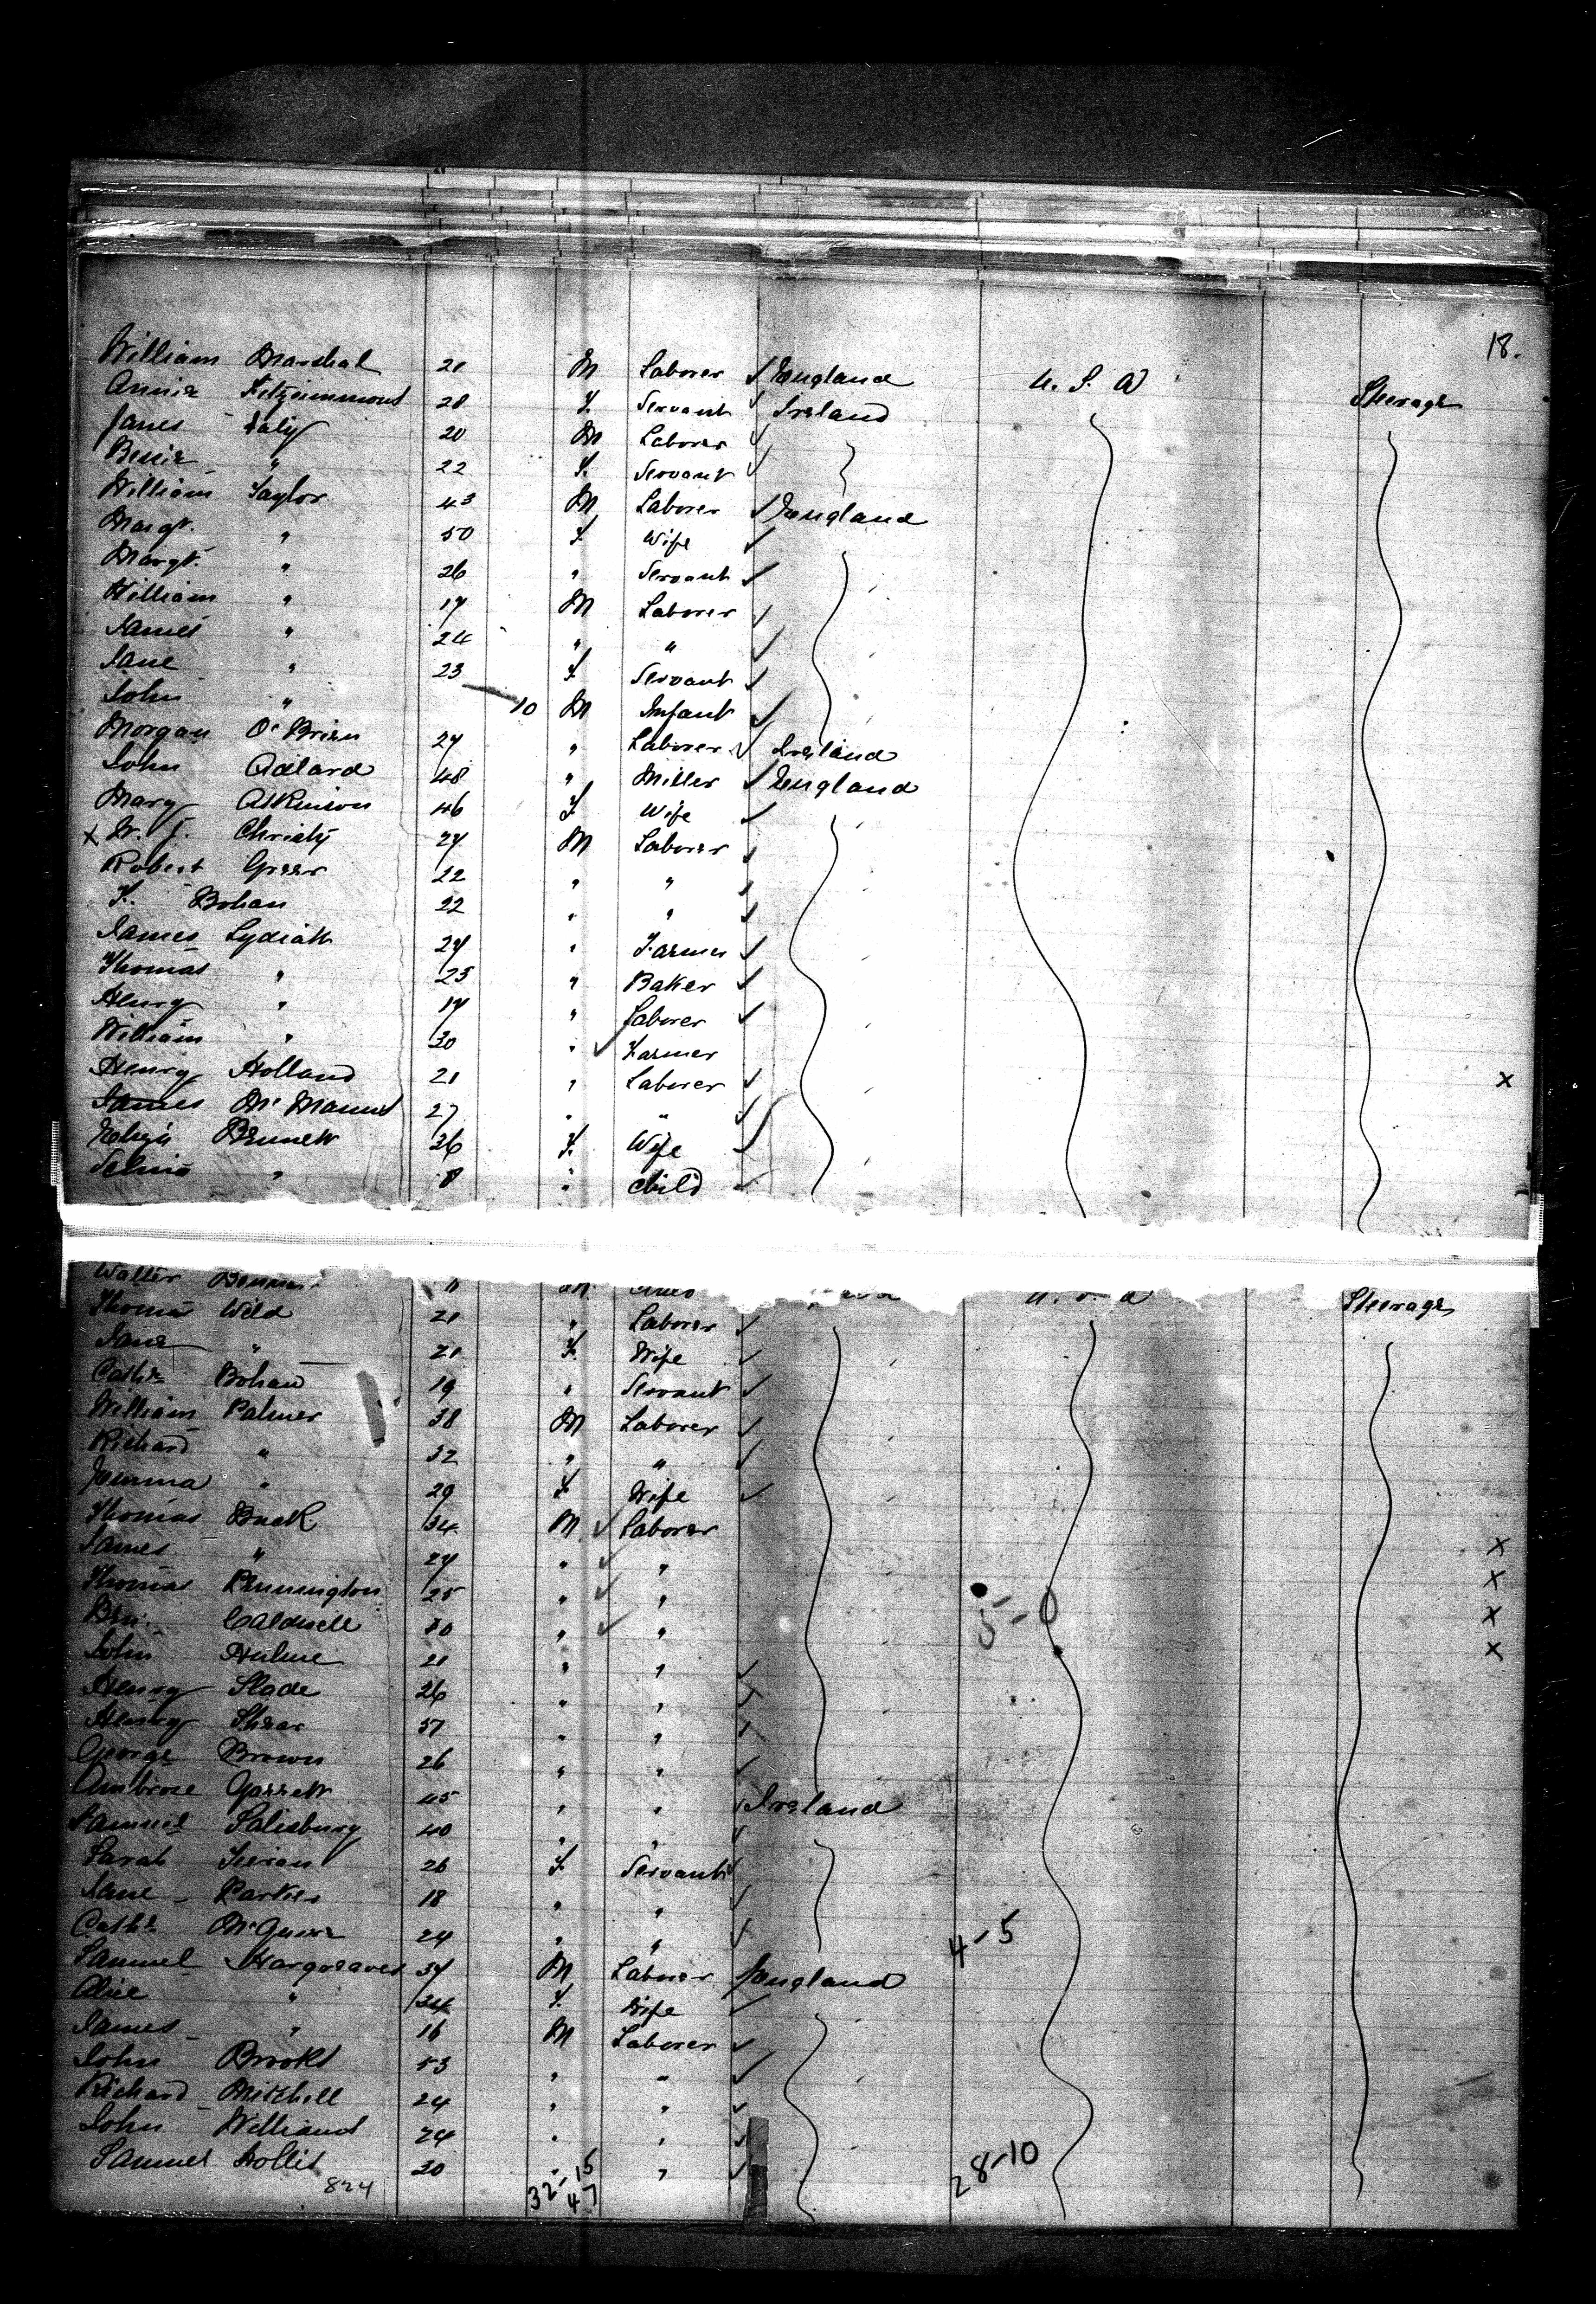 18.
William Marshal 21 M Laborer ✓ England U. S. A Steerage
Annie Fitzsimmons 28 F. Servant ✓ Ireland
James Daly 20 M Laborer ✓
Bessie " 22 F. Servant ✓
William Taylor 43 M Laborer ✓ England
Margt. " 50 F Wife ✓
Margt. " 26 " Servant ✓
William " 17 M Laborer ✓
James " 24 " " ✓
Jane " 23 F Servant ✓
John " 10 M Infant ✓
Morgan O'Brien 27 " Laborer ✓ Ireland
John Adlard 48 " Miller ✓ England
Mary Atkinson 46 F Wife ✓
x W. J. Christy 27 M Laborer ✓
Robert Greer 22 " " ✓
F. Bohan 22 " " ✓
James Lydiatt 27 " Farmer ✓
Thomas " 25 " Baker ✓
Henry " 17 " Laborer ✓
William " 30 " ✓ Farmer
Henry Holland 21 " Laborer ✓ x
James McManus 27 " " ✓
Bennett 26 F. Wife ✓
" 8 " Child ✓
Walter 11 M U. S. A Steerage
Thomas Wild 21 " Laborer ✓
Jane " 21 F. Wife ✓
Cathe Bohan 19 " Servant ✓
William Palmer 38 M Laborer ✓
Richard " 32 " " ✓
Jemima " 29 F Wife ✓
Thomas Buck 34 M ✓ Laborer x
James " 27 " ✓ " x
Thomas Pennington 25 " ✓ " 5-0 x
Ben. Caldwell 30 " ✓ " x
John Hulme 21 " " ✓
Henry Slade 26 " " ✓
Henry Shear 37 " " ✓
George Brown 26 " " ✓
Ambrose Garrett 45 " " ✓ Ireland
Samuel Salisbury 40 " " ✓
Sarah 26 F Servant ✓
Jane Parker 18 " " ✓
Cathe McGuire 24 " " ✓ 4-5
Samuel Hargreaves 37 M Laborer ✓ England
Alice " 34 F. Wife ✓
James " 16 M Laborer ✓
John Brooks 53 " " ✓
Richard Mitchell 24 " " ✓
John Williams 24 " " ✓
Samuel Hollis 30 " " ✓ 28-10
824 32-15
47